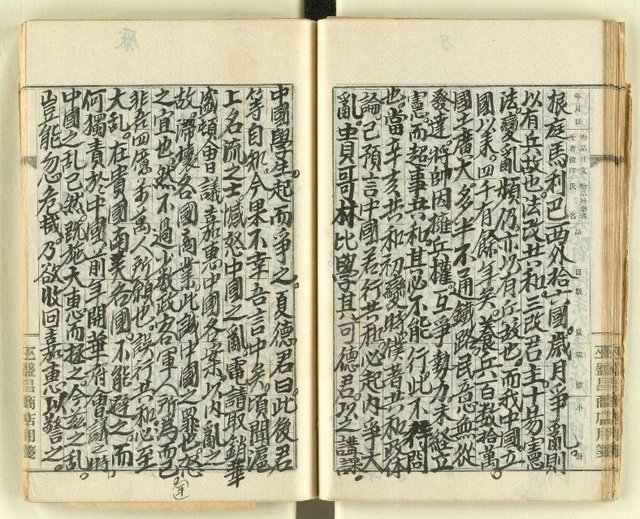 根庭馬利巴西外拾六國歲月爭亂則
以有兵故也法改共和三改君主十易憲
法變亂頻乃亦以有兵故也而我中國立
國以來四千月餘年矣養兵百數拾萬
國土廣大多半不通鐵路民意無從
發達將帥因擁兵權互爭勢力未經立
憲而超事共和其必不能行此不待問
也當辛亥共和初發時僕著共和政体
論已預言中國若行共和必起內爭大
亂中貝哥林比學其可德君以之講課
中國學生起而爭之夏德君曰此後君
等自知今果不幸吾言中矣頃聞滬
上名流之士憾怒中國之亂電請取銷華
盛頓會議嘉惠中國各案以內亂之
故滯壞各國商業此誠中國之罪也怒
之宜也然不過少數政客軍人所為而已
非吾四億萬萬人所願也行共和必至
大亂在貴國南美各國不能避之而
何獨責於中國前年開華府會議時
中國之亂已然既施大惠而拯之今極之亂
豈能忽危哉乃欲收回嘉惠以警之
巫盛昌商店用箋
巫盛昌商店用箋